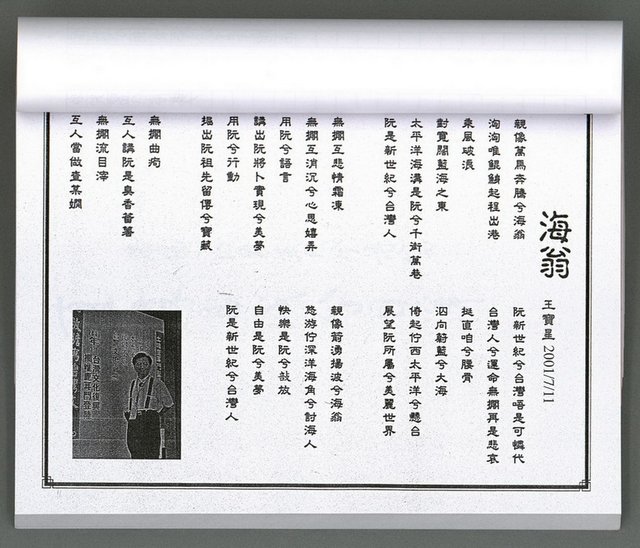 海翁
王寶星 2001/7/11
親像萬馬奔騰兮海翁
洶洶唯鯤鯓起程出港
乘風破浪
對寬闊藍海之東
太平洋海溝是阮兮千街萬巷
阮是新世紀兮台灣人
無擱互悲情霜凍
無擱互消沉兮心思嬉弄
用阮兮語言
講出阮將卜實現兮美夢
用阮兮行動
揣出阮祖先留傳兮寶藏
無擱曲疴
互人講阮是臭香蕃薯
無擱流目滓
互人當做查某嫻
阮新世紀兮台灣唔是可憐代
台灣人兮運命無擱再是悲哀
挺直咱兮腰骨
泅向蔚藍兮大海
倚起佇西太平洋兮戀台
展望阮所屬兮美麗世界
親像箭湧揚波兮海翁
悠游佇深洋海角兮討海人
快樂是阮兮放
自由是阮兮美夢
阮是新世紀兮台灣人